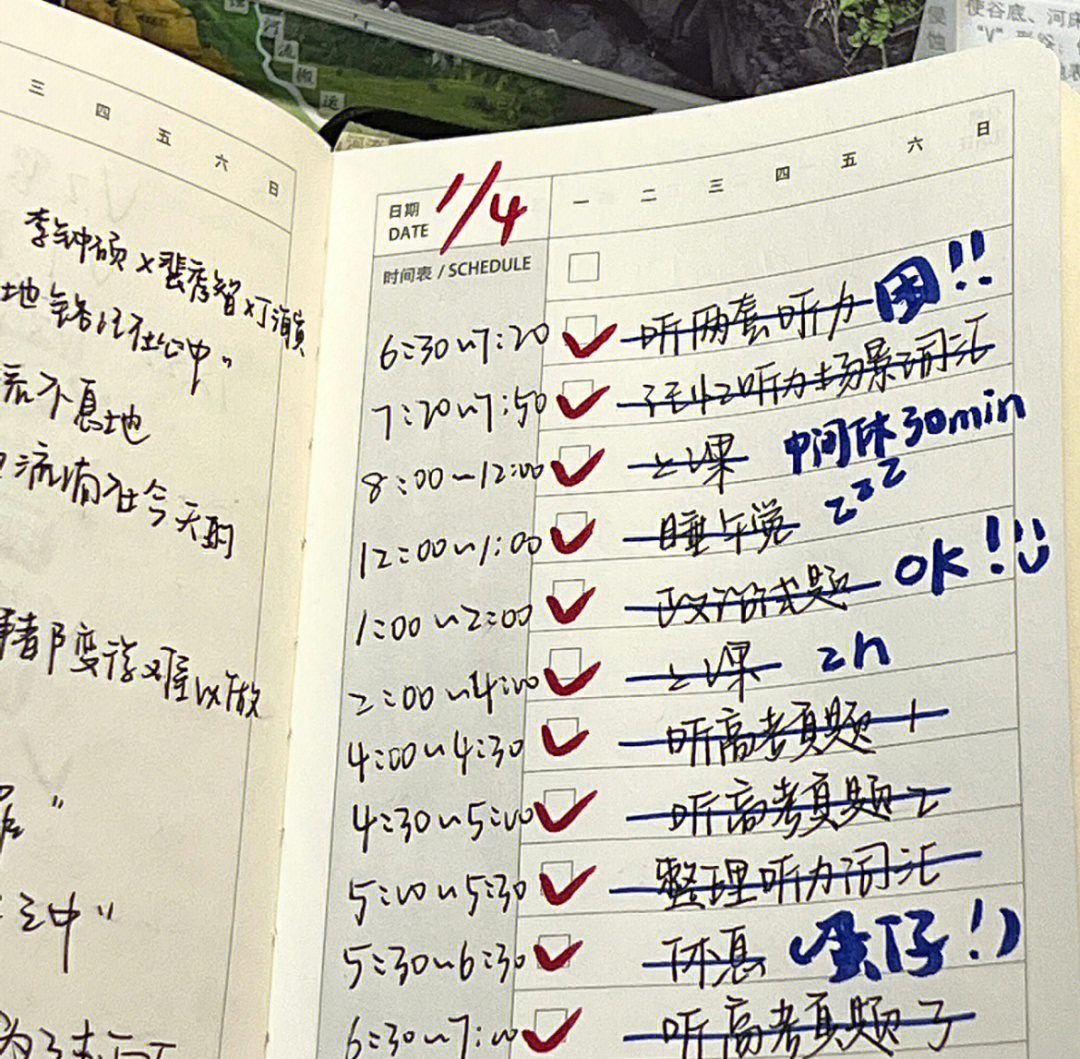 使谷底、河床
侵蚀
"V"
河流搬运
三 四 五 六 日
李钟硕×裴秀智×丁海寅
中"
不息地
流淌在今天的
都变得难以做
中"
日期 DATE 1/4
一 二 三 四 五 六 日
时间表 / SCHEDULE
6:30~7:20 听两套听力 困!!
7:20~7:50 听力场景词汇
8:00~12:00 上课 中间休30min
12:00~1:00 睡午觉 zzz
1:00~2:00 政治试题 OK!
2:00~4:00 上课 2h
4:00~4:30 听高考真题1
4:30~5:00 听高考真题2
5:00~5:30 整理听力词汇
5:30~6:30 休息 (蛋仔!)
6:30~7:00 听高考真题3